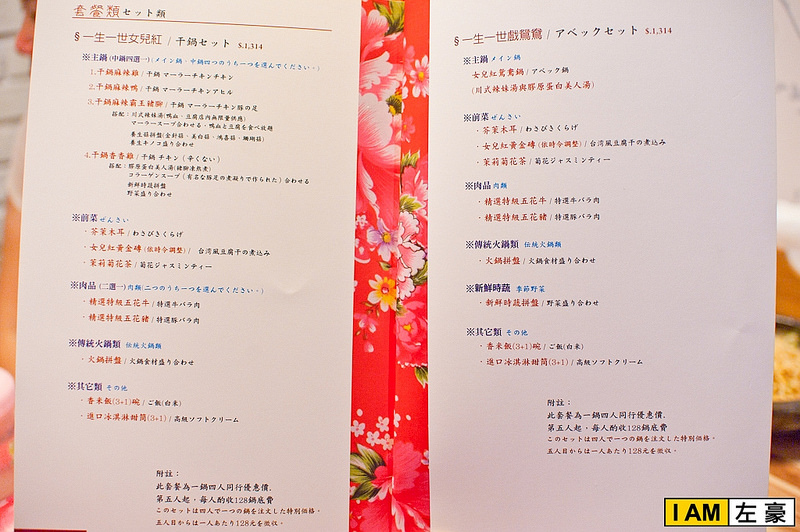 套餐類セット類
§一生一世女兒紅 / 干鍋セット $.1,314
※主鍋(中鍋四選一)(メイン鍋・中鍋四つのうち一つを選んでください。)
1.干鍋麻辣雞 / 干鍋 マーラーチキンチキン
2.干鍋麻辣鴨 / 干鍋 マーラーチキンアヒル
3.干鍋麻辣霸王豬腳 / 干鍋 マーラーチキン豚の足
搭配：川式辣妹湯(鴨血、豆腐店內無限量供應)
マーラースープ合わせる。鴨血と豆腐を食べ放題
養生菇拼盤(金針菇、美白菇、鴻喜菇、珊瑚菇)
養生キノコ盛り合わせ
4.干鍋香香雞 / 干鍋 チキン (辛くない)
搭配：膠原蛋白美人湯(豬腳凍熬煮)
コラーゲンスープ (有名な豚足の煮凝りで作られた) 合わせる
新鮮時蔬拼盤
野菜盛り合わせ
※前菜 ぜんさい
・芥茉木耳 / わさびきくらげ
・女兒紅黃金磚 (依時令調整) / 台湾風豆腐干の煮込み
・茉莉菊花茶 / 菊花ジャスミンティー
※肉品 (二選一) 肉類(二つのうち一つを選んでください。)
・精選特級五花牛 / 特選牛バラ肉
・精選特級五花豬 / 特選豚バラ肉
※傳統火鍋類 伝統火鍋類
・火鍋拼盤 / 火鍋食材盛り合わせ
※其它類 その他
・香米飯(3+1)碗 / ご飯(白米)
・進口冰淇淋甜筒(3+1) / 高級ソフトクリーム
附註：
此套餐為一鍋四人同行優惠價,
第五人起，每人酌收128鍋底費
このセットは四人で一つの鍋を注文した特別価格。
五人目からは一人あたり128元を徴收。
§一生一世戲鴛鴦 / アベックセット $.1,314
※主鍋 メイン鍋
女兒紅鴛鴦鍋 / アベック鍋
(川式辣妹湯與膠原蛋白美人湯)
※前菜 ぜんさい
・芥茉木耳 / わさびきくらげ
・女兒紅黃金磚 (依時令調整) / 台湾風豆腐干の煮込み
・茉莉菊花茶 / 菊花ジャスミンティー
※肉品 肉類
・精選特級五花牛 / 特選牛バラ肉
・精選特級五花豬 / 特選豚バラ肉
※傳統火鍋類 伝統火鍋類
・火鍋拼盤 / 火鍋食材盛り合わせ
※新鮮時蔬 季節野菜
・新鮮時蔬拼盤 / 野菜盛り合わせ
※其它類 その他
・香米飯(3+1)碗 / ご飯(白米)
・進口冰淇淋甜筒(3+1) / 高級ソフトクリーム
附註：
此套餐為一鍋四人同行優惠價,
第五人起，每人酌收128鍋底費
このセットは四人で一つの鍋を注文した特別価格。
五人目からは一人あたり128元を徴收。
I AM 左豪